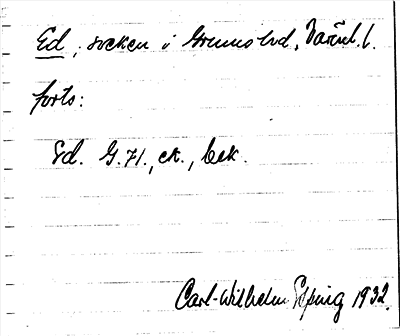 Ed, socken i Grums hd, Värml. l.
forts:
Ed. G. 71., ek., bek.
Carl-Wilhelm 1932.